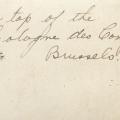 top of the
Cologne des Con
Brussels.